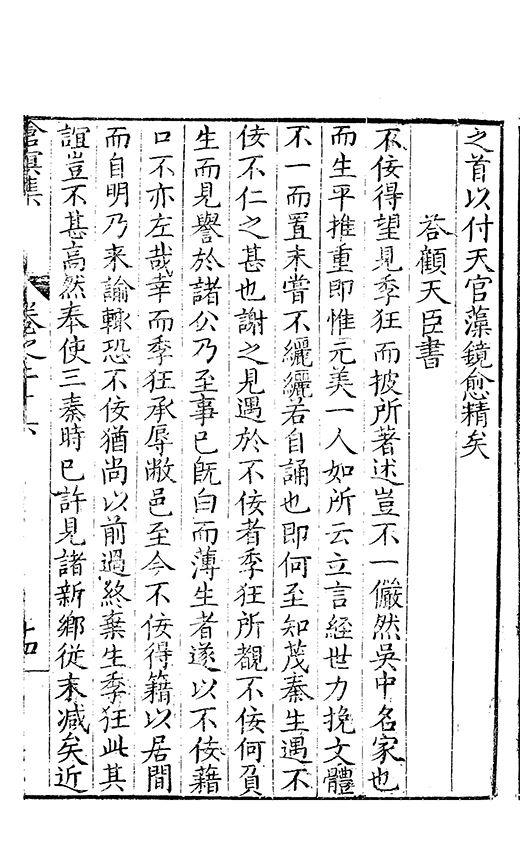 之首以付天官藻鏡愈精矣
荅顧天臣書
不佞得望見季狂而披所著述豈不一儼然吳中名家也
而生平推重即惟元美一人如所云立言經世力挽文體
不一而置未嘗不纚纚若自誦也即何至知茂秦生遇不
佞不仁之甚也謝之見遇於不佞者季狂所覩不佞何負
生而見譽於諸公乃至事已旣白而薄生者遂以不佞藉
口不亦左哉幸而季狂承辱敝邑至今不佞得籍以居間
而自明乃来諭轍恐不佞猶尚以前過終棄生季狂此其
誼豈不甚高然奉使三秦時已許見諸新鄉從末减矣近
滄溟集
卷之二十六
十四